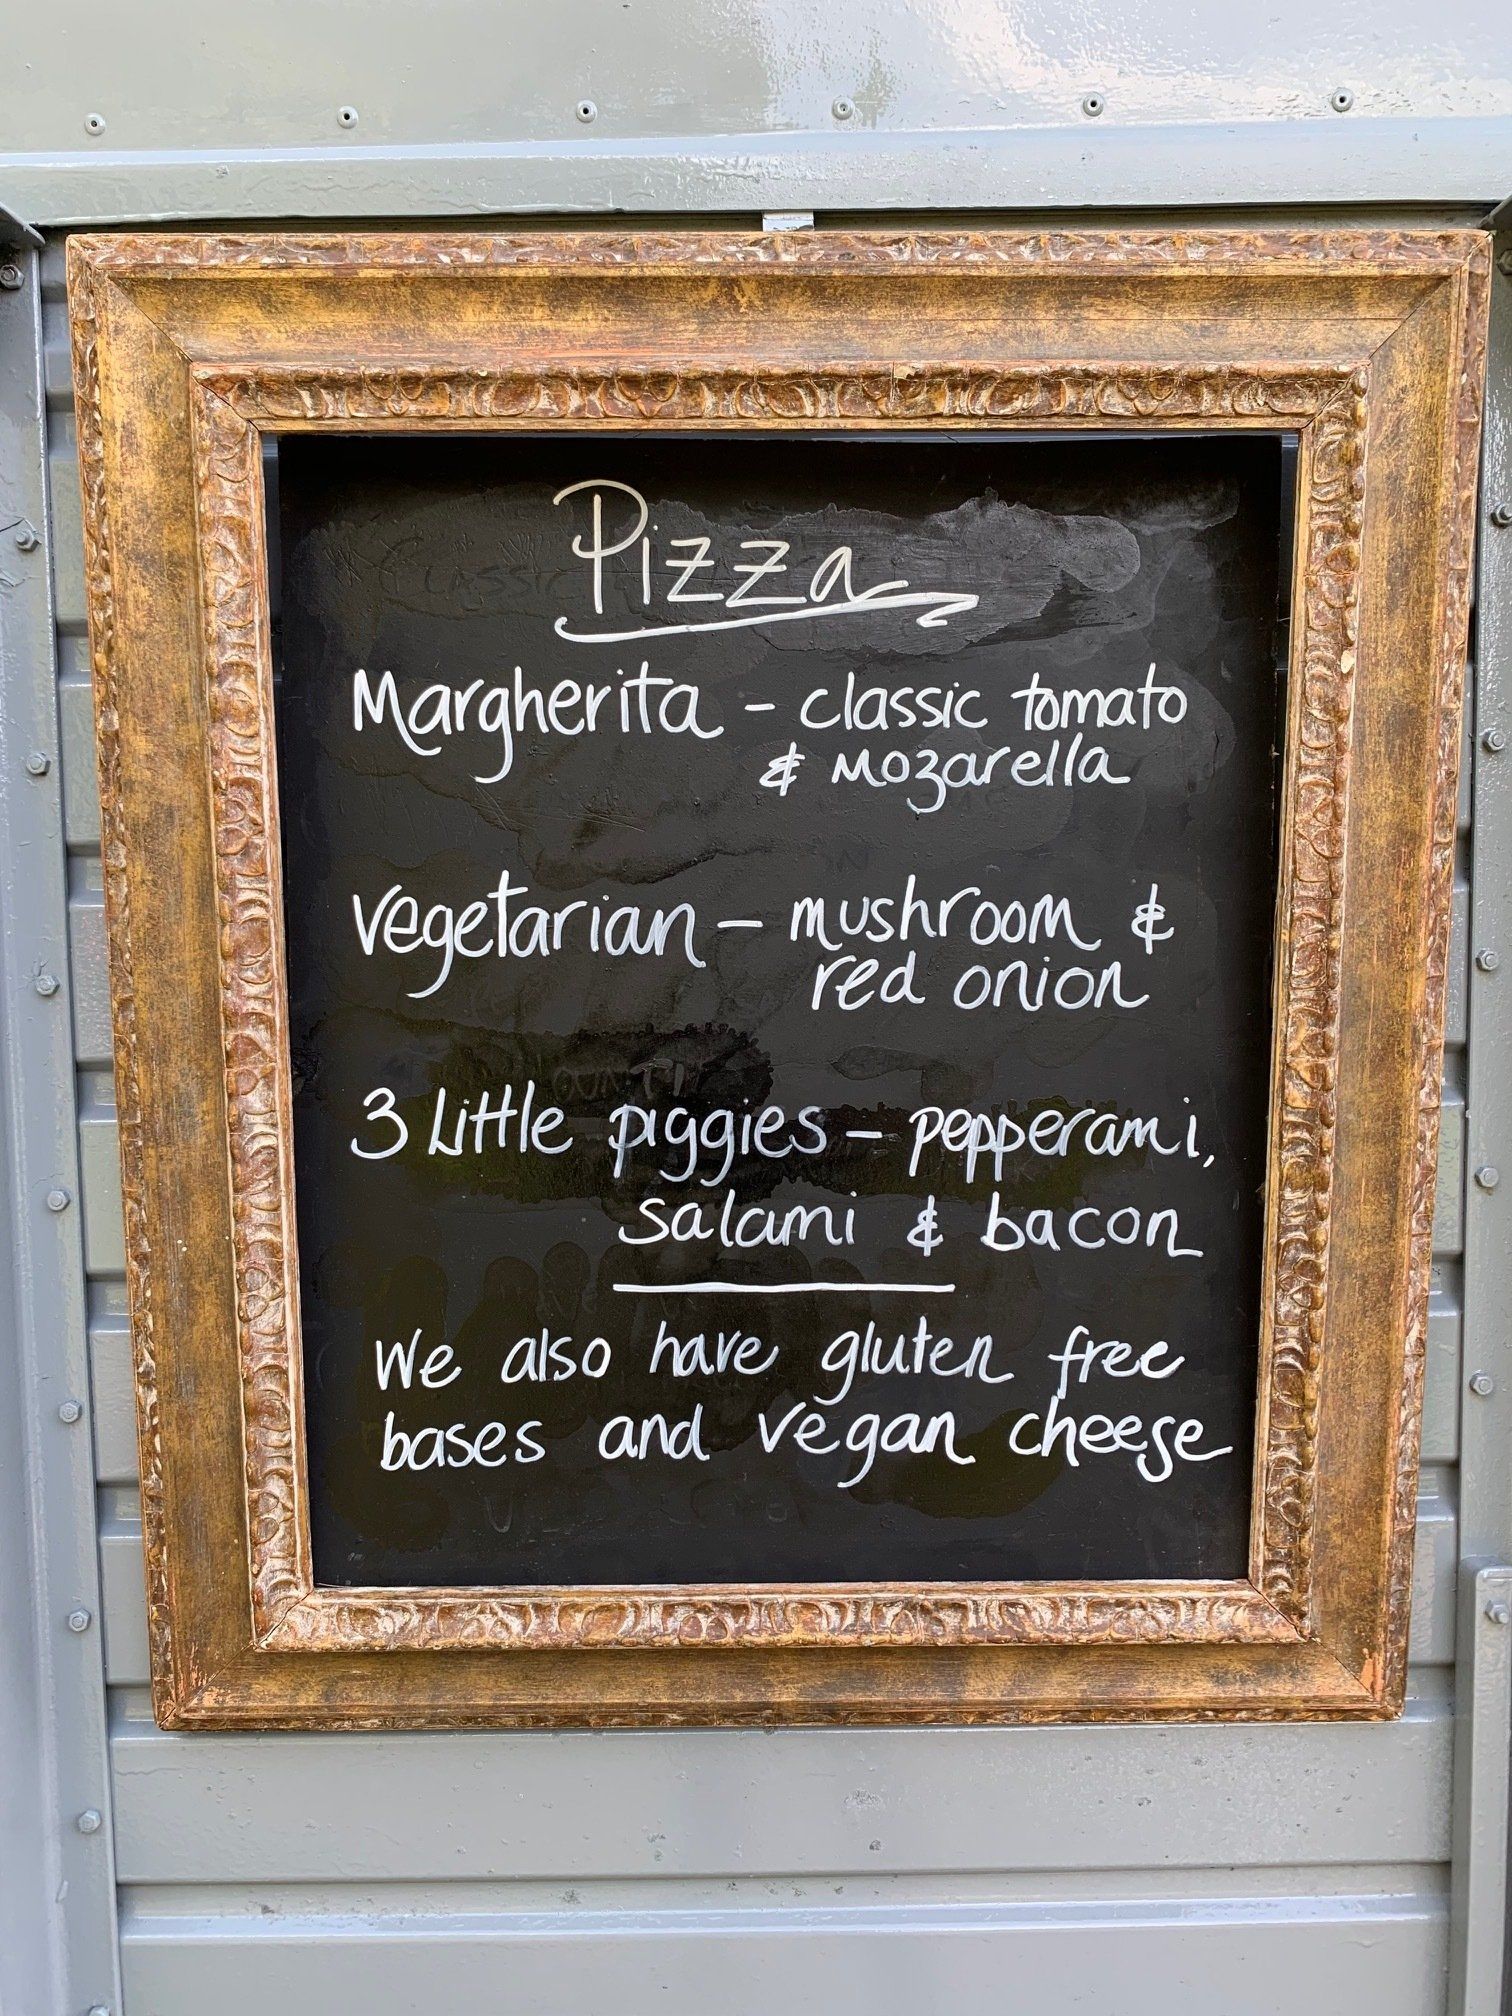 Pizza
Margherita - classic tomato
& mozarella
Vegetarian - mushroom &
red onion
3 Little piggies - pepperami,
salami & bacon
We also have gluten free
bases and vegan cheese